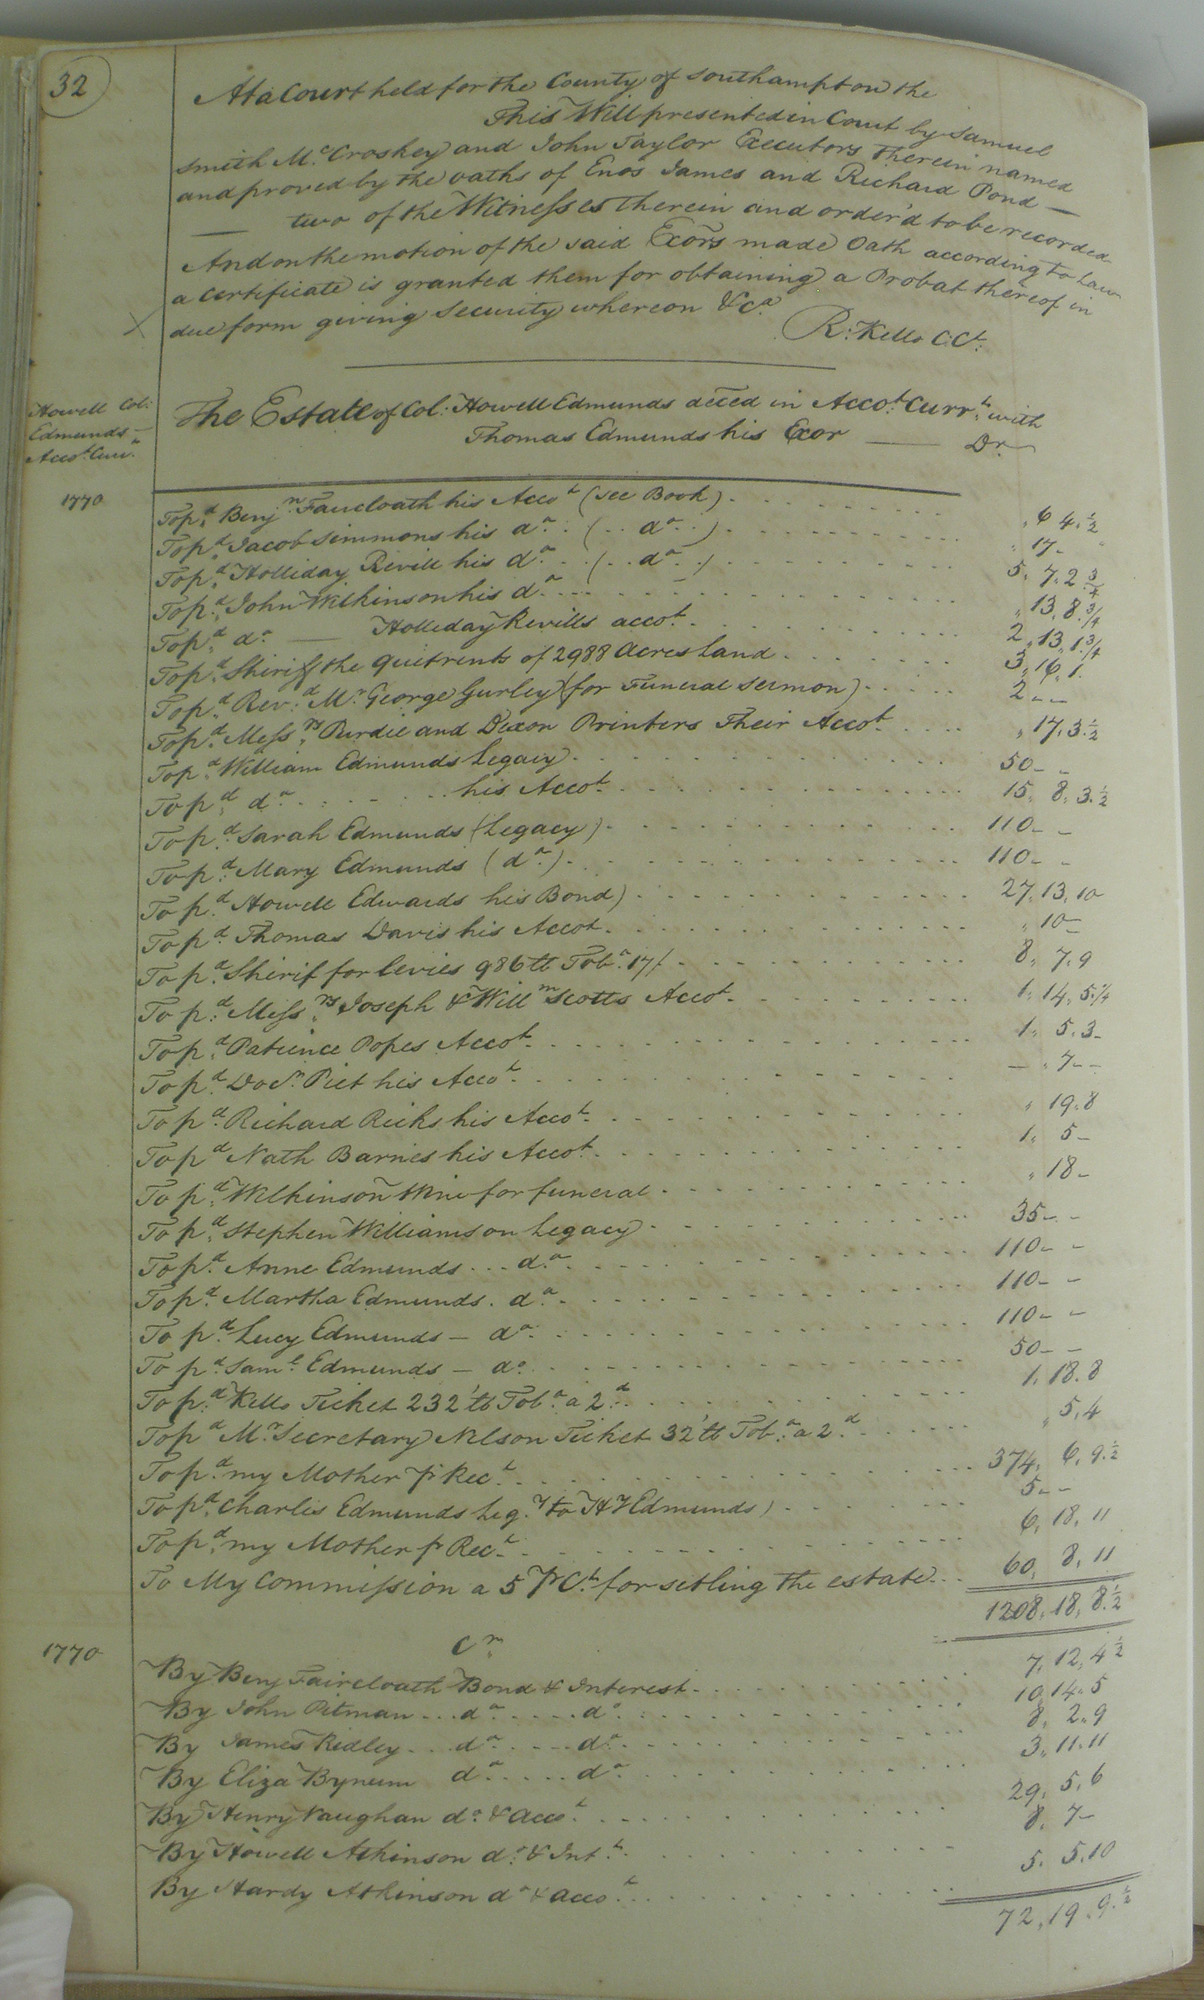 32
At a Court held for the County of Southampton the
This Will presented in Court by Samuel
Smith Mc.Croskey and John Taylor Executors therein named
and proved by the oaths of Enos James and Richard Pond —
— two of the Witnesses therein and order'd to be recorded
And on the motion of the said Exors made Oath according to Law
a certificate is granted them for obtaining a Probat thereof in
due form giving Security whereon &ca.
R: Kello C.Ct:
Howell Col:
Edmunds
Accot. Curr.
The Estate of Col: Howell Edmunds deced in Accot. Currt. with
Thomas Edmunds his Exor — Dr.
1770
To pd. Benjn. Faircloath his Accot (see Book) . . . " 6 4. ½
To pd. Jacob Simmons his do. (.. do. ..) . . . " 17 -
To pd. Holliday Revill his do. (.. do. ..) . . . 5. 7. 2 ¾
To pd. John Wilkinson his do. . . . " 13. 8. ¾
To pd. do. — Holliday Revills accot. . . . 2. 13. 1. ¾
To pd. Shiriff the Quitrents of 2988 Acres Land . . . 3. 16. 1.
To pd. Revd. Mr. George Gurley (for Funeral Sermon) . . . 2 - -
To pd. Messrs. Purdie and Dixon Printers Their Accot. . . . " 17. 3. ½
To pd. William Edmunds Legacy . . . 50 - -
To pd. do. . . . his Accot. . . . 15. 8. 3. ½
To pd. Sarah Edmunds (Legacy) . . . 110 - -
To pd. Mary Edmunds (do.) . . . 110 - -
To pd. Howell Edwards his Bond) . . . 27. 13. 10
To pd. Thomas Davis his Accot. . . . " 10 -
To pd. Shirif for levies 986 lb Tobo. 17/. . . . 8. 7. 9
To pd. Messrs. Joseph & Willm Scotts Accot. . . . 1. 14. 5. ¼
To pd. Patience Popes Accot. . . . 1. 5. 3 -
To pd. Docr. Piet his Accot. . . . — " 7 - -
To pd. Richard Ricks his Accot. . . . " 19. 8
To pd. Nath Barnes his Accot. . . . 1. 5 -
To pd. Wilkinson Wine for funeral . . . " 18 -
To pd. Stephen Williamson Legacy . . . 35 - -
To pd. Anne Edmunds . . . do. . . . 110 - -
To pd. Martha Edmunds . do. . . . 110 - -
To pd. Lucy Edmunds — do. . . . 110 - -
To pd. Saml. Edmunds — do . . . 50 - -
To pd. Kello Ticket 232 lb Tobo. a 2d. . . . 1. 18. 8
To pd Mr. Secretary Nelson Ticket 32 lb Tobo. a 2d. . . . " 5. 4
To pd. my Mother pr Rect. . . . 374. 6. 9. ½
To pd. Charles Edmunds Leg.y to H Edmunds) . . . 5 - -
To pd. my Mother pr Rect. . . . 6. 18. 11
To My Commission a 5 pr Ct. for setling the estate . . . 60. 8. 11
1208. 18. 8. ½
1770
Cr.
By Benj Faircloath Bond & Interest . . . 7. 12. 4 ½
By John Pitman . . . do. . . . do. . . . 10. 14. 5
By James Ridley . . . do. . . . do. . . . 8. 2. 9
By Eliza Bynum do. . . . do. . . . 3. 11. 11
By Henry Vaughan do. & Accot. . . . 29. 5. 6
By Howell Atkinson do. & Intt. . . . 8. 7 -
By Hardy Atkinson do & accot. . . . 5. 5. 10
72. 19. 9. ½